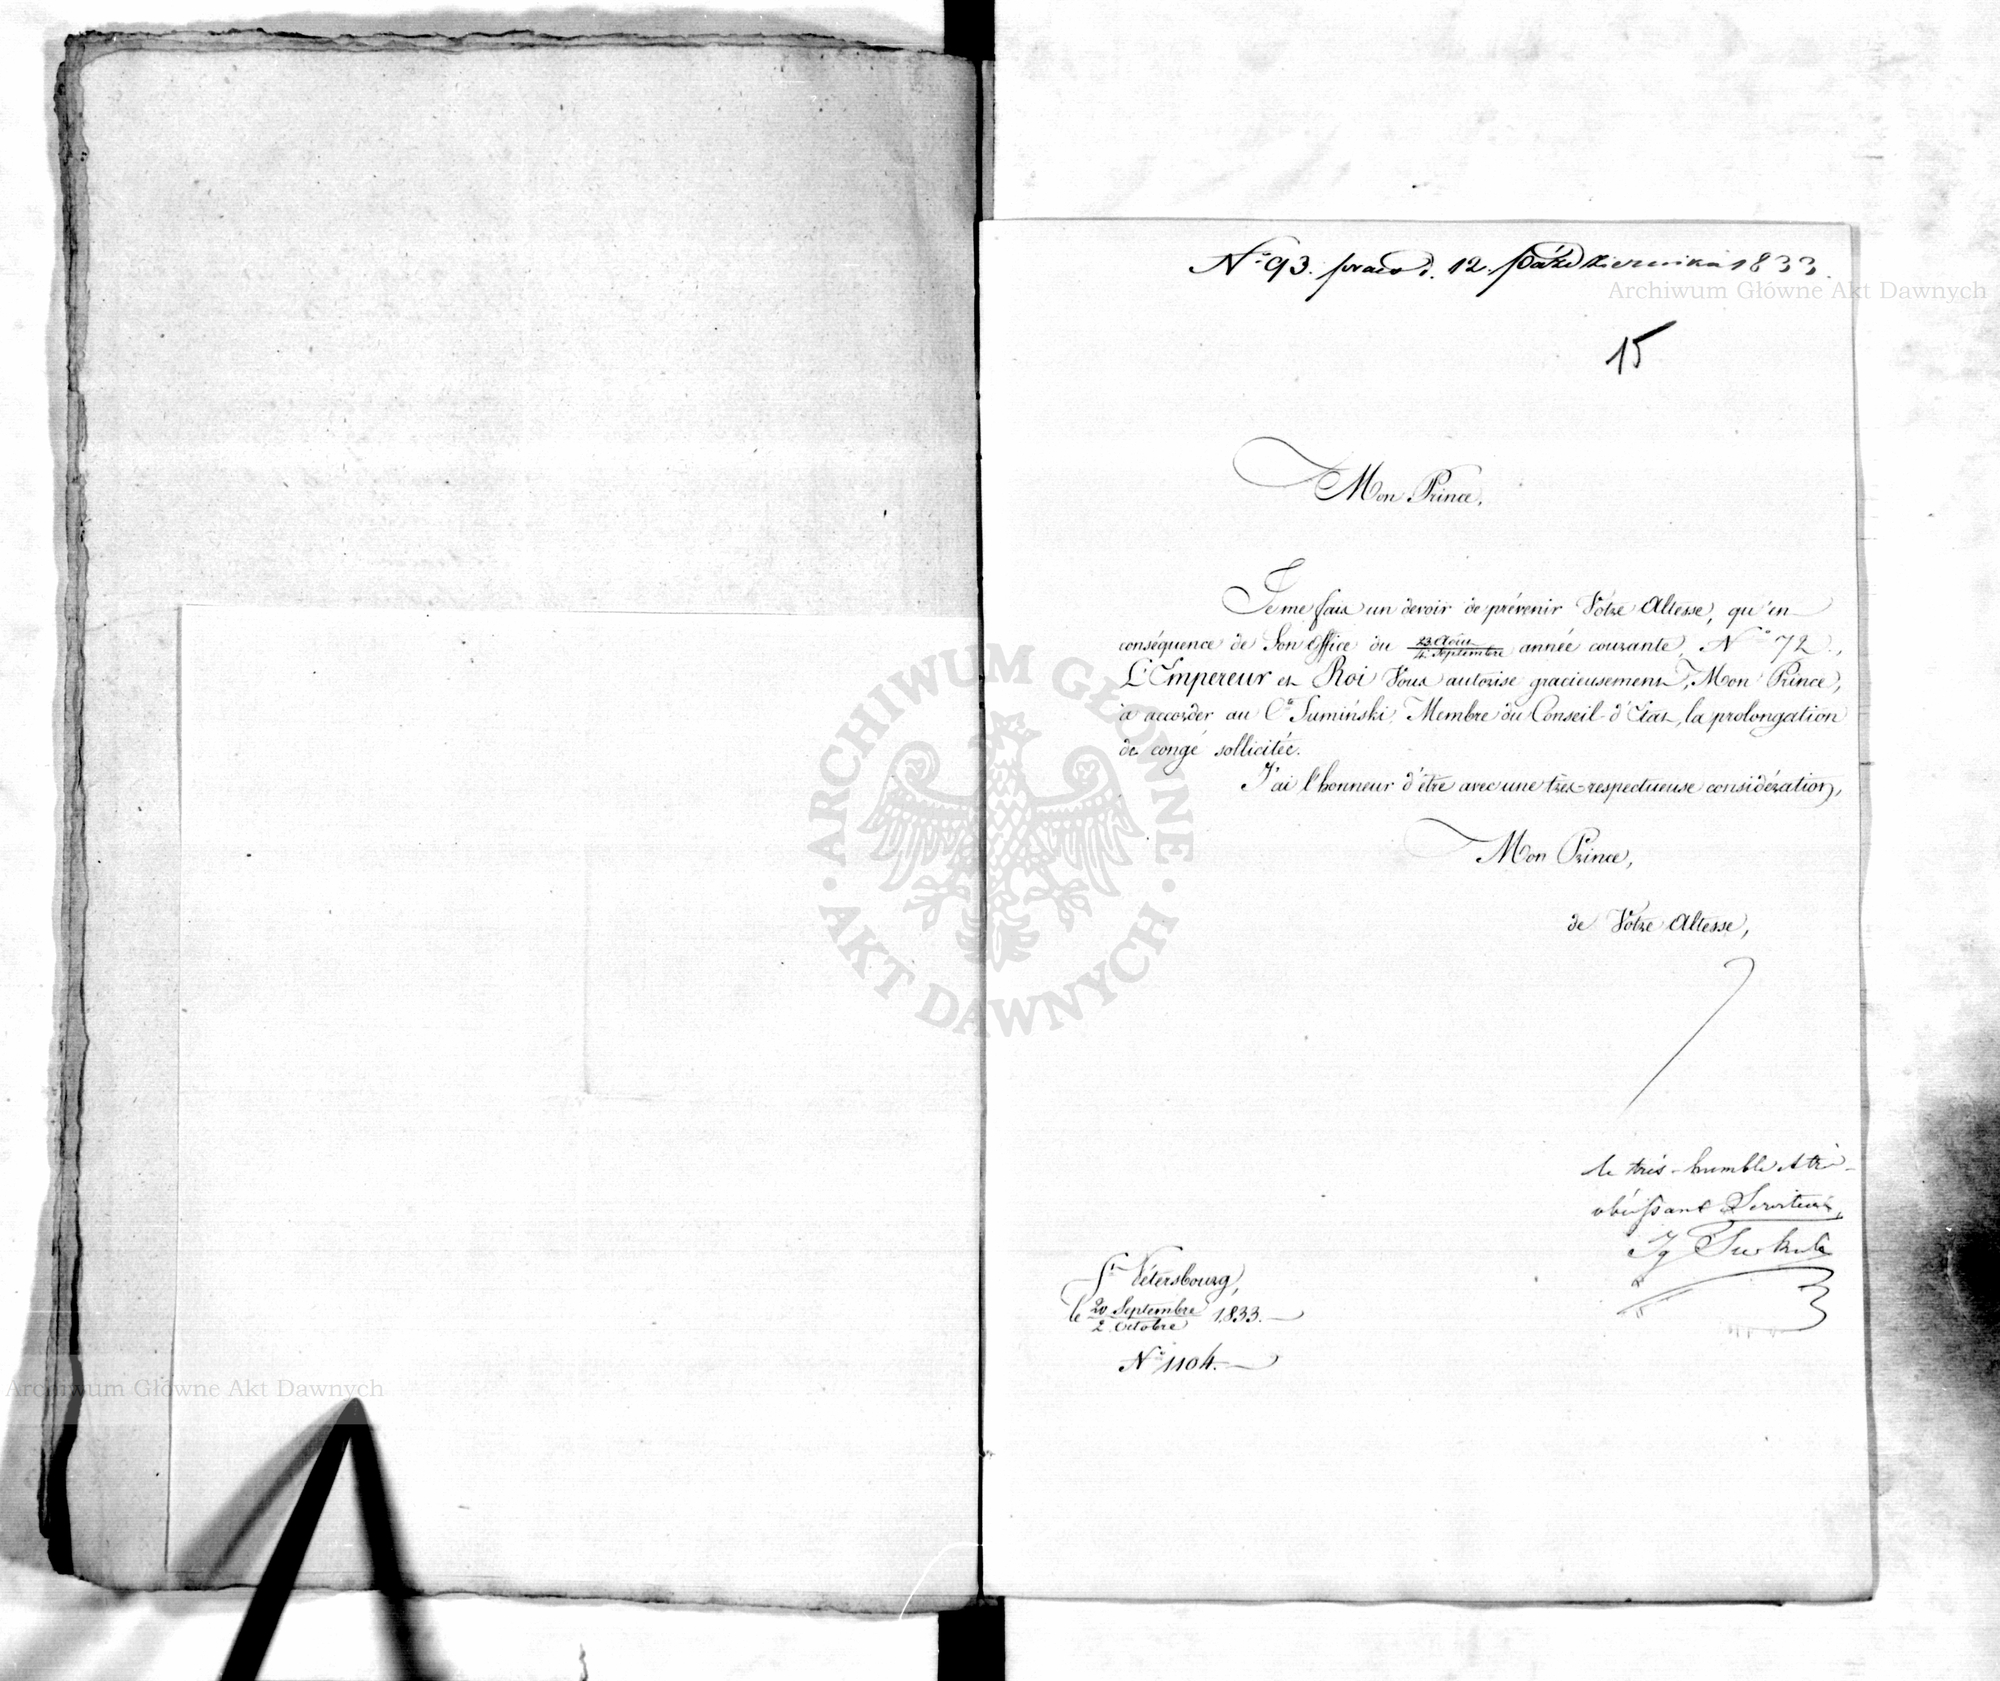 N° 93. praes d. 12. Października 1833.
Archiwum Główne Akt Dawnych
15
Mon Prince,
Je me fais un devoir de prévenir Votre Altesse, qu'en
conséquence de Son Office du 23 Août / 4 Septembre année courante, N° 72.,
L'Empereur et Roi Vous autorise gracieusement, Mon Prince,
à accorder au Cte Sumiński, Membre du Conseil d'Etat, la prolongation
de congé sollicitée.
J'ai l'honneur d'être avec une très respectueuse considération,
Mon Prince,
de Votre Altesse,
le très-humble et très-
obéissant Serviteur,
Ig Turkuł
St Pétersbourg,
le 20 Septembre / 2 Octobre 1833.
N° 1104.
ARCHIWUM GŁÓWNE
AKT DAWNYCH
Archiwum Główne Akt Dawnych